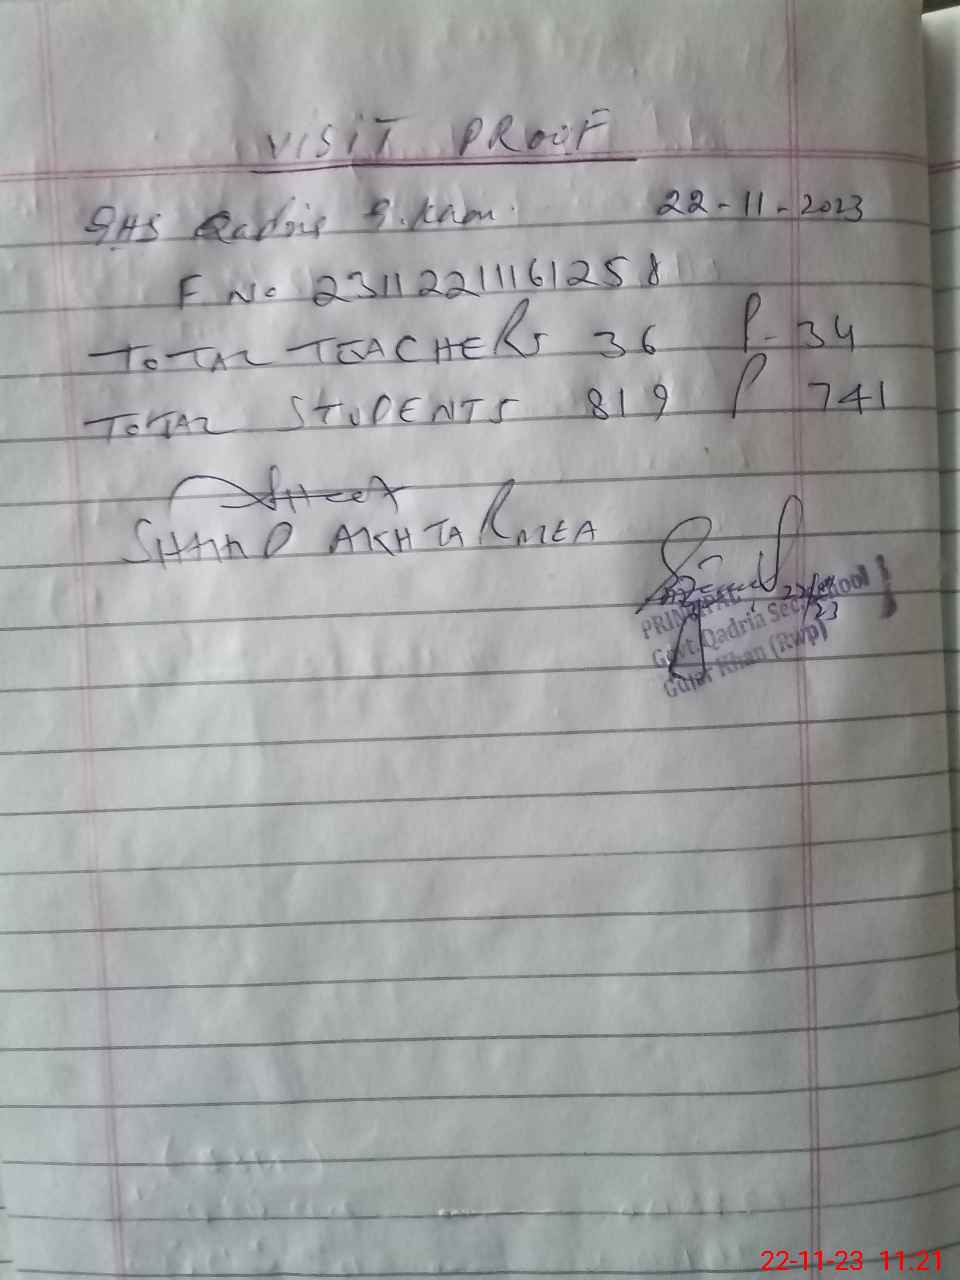 VISIT PROOF
GHS Qadria G.Khan. 22-11-2023
F No 23112211161258
TOTAL TEACHERS 36 P-34
TOTAL STUDENTS 819 P 741
AKHTAR MEA
PRINCIPAL
Govt. Qadria Sec. School
Gujar Khan (Rwp)
22-11-23 11:21